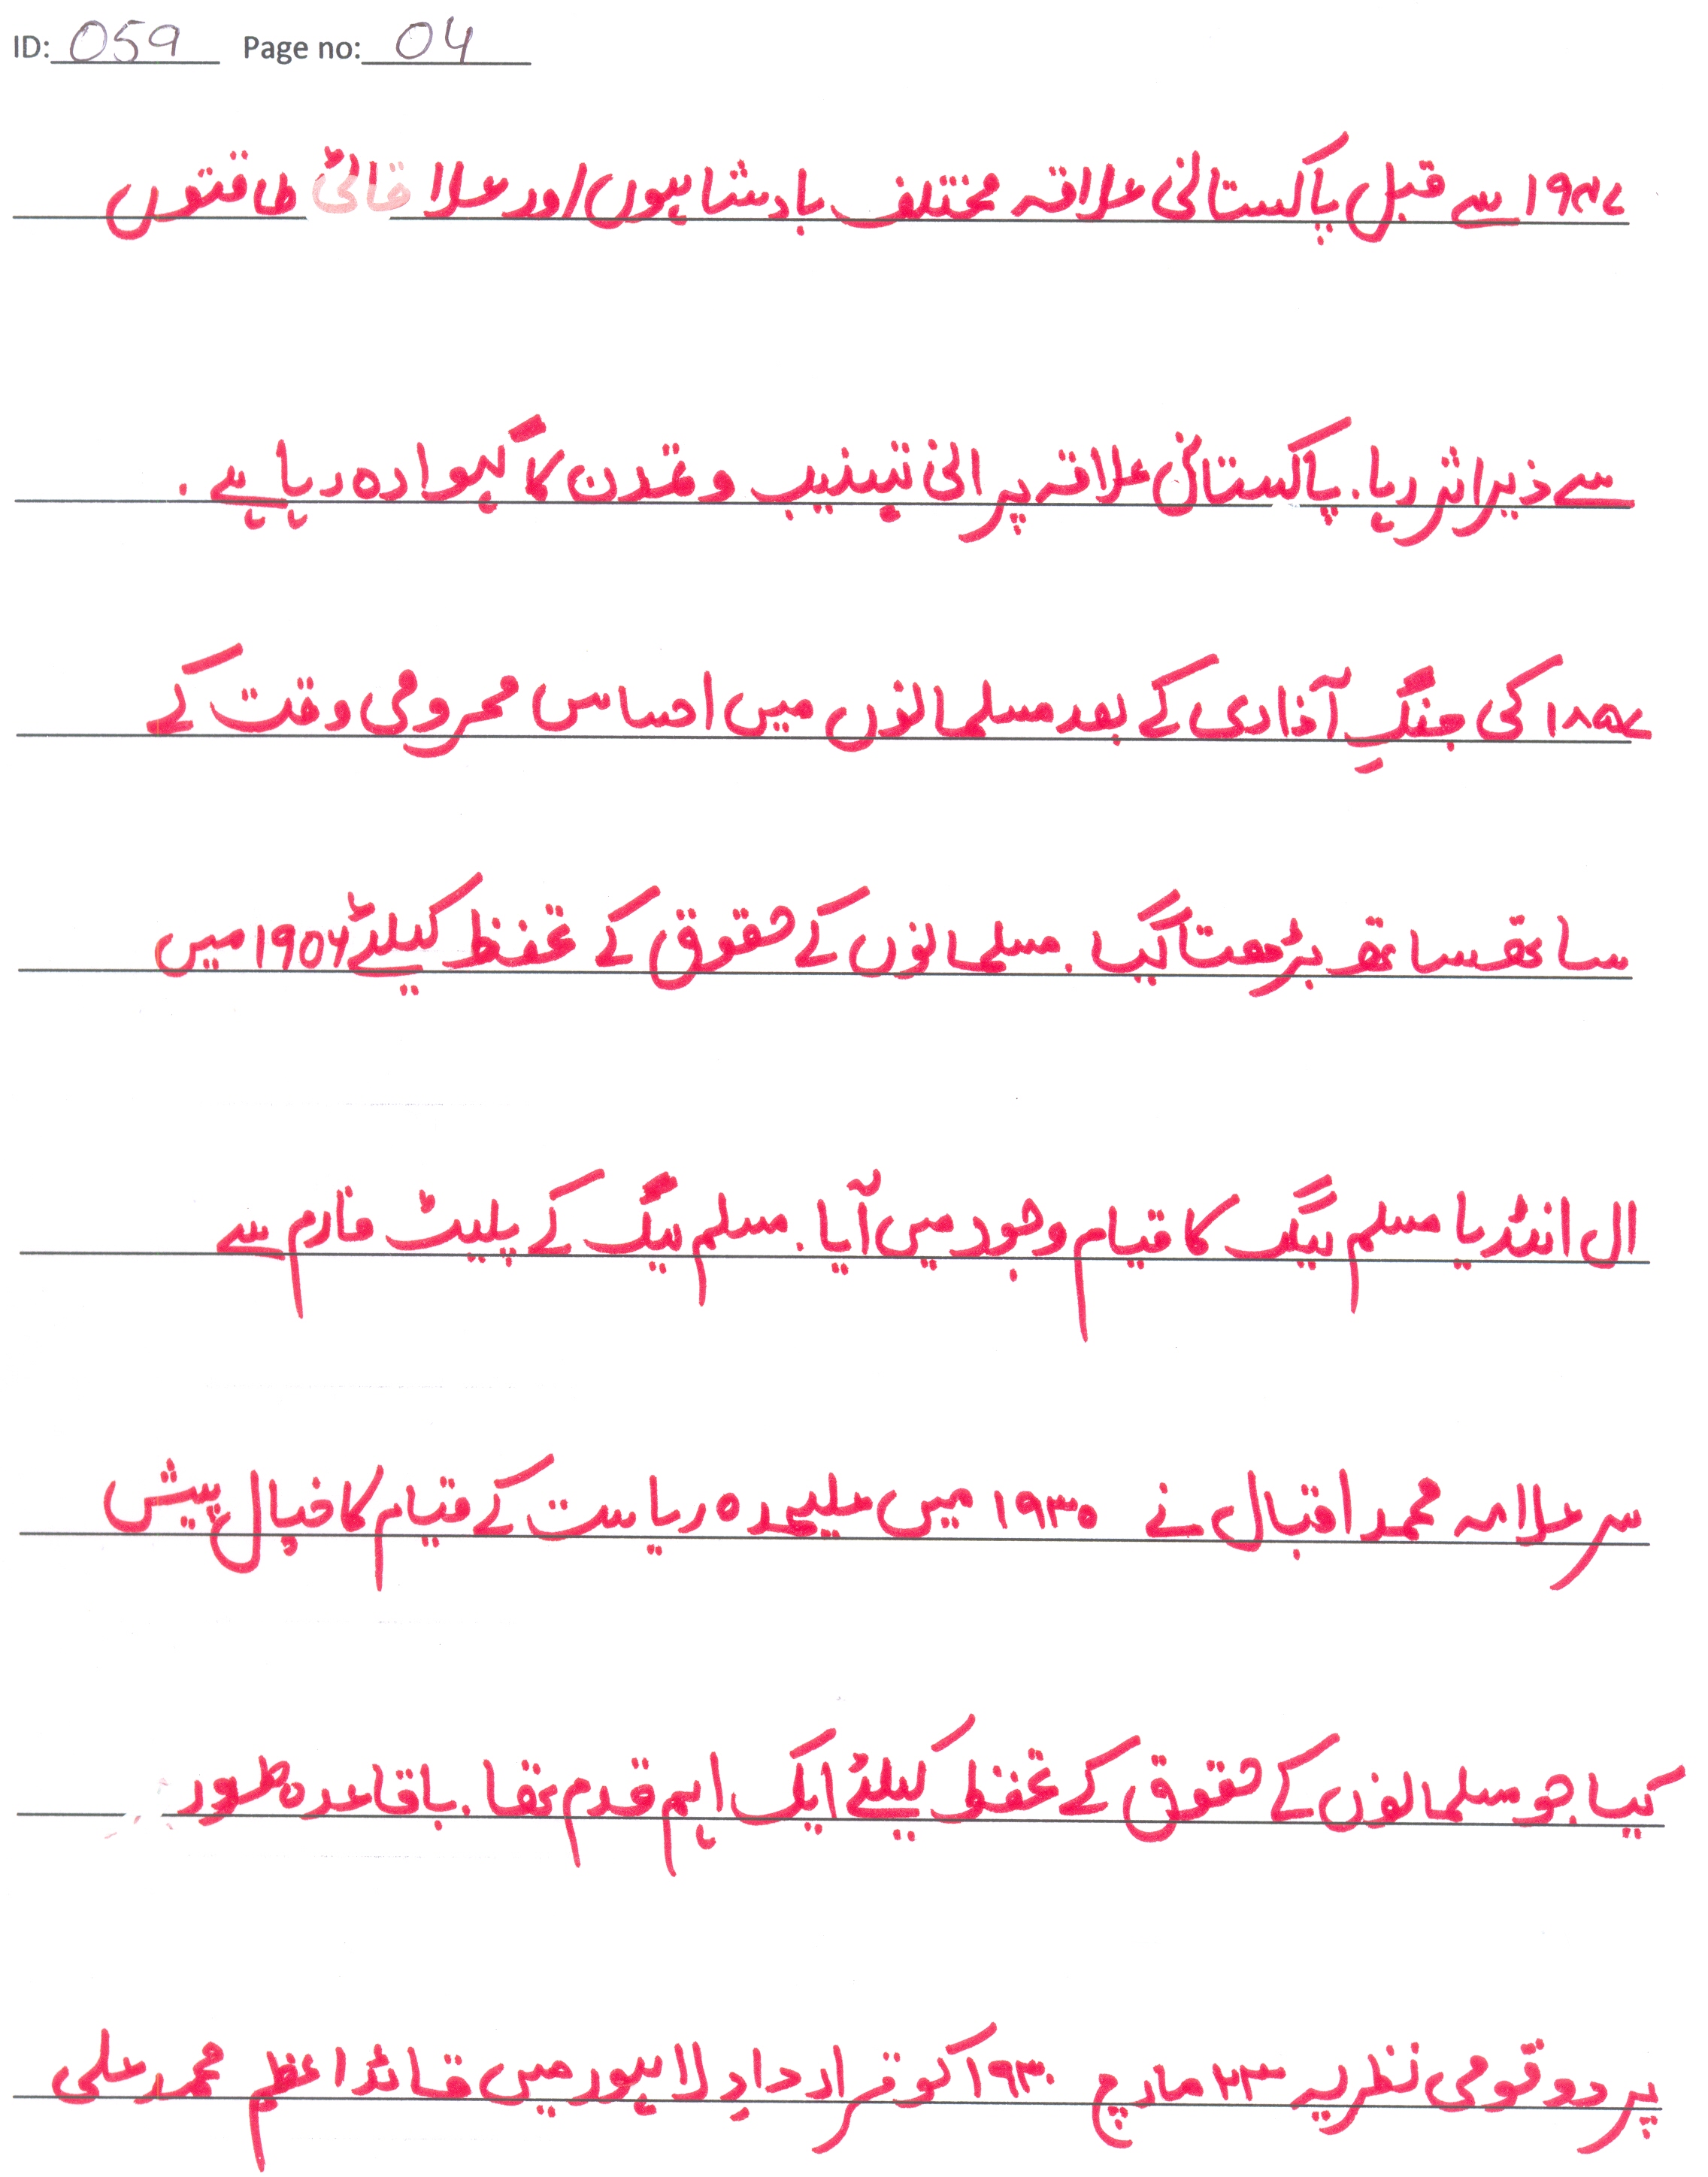 ID: 059 Page no: 04
۱۹۴۷ سے قبل پاکستانی علاقہ مختلف بادشاہوں اور علاقائی طاقتوں
سے ذیراثر رہا. پاکستانی علاقہ پرانی تہذیب و تمدن کا گہوارہ رہا ہے.
۱۸۵۷ کی جنگِ آذادی کے بعد مسلمانوں میں احساس محرومی وقت کے
ساتھ ساتھ بڑھتا گیا. مسلمانوں کے حقوق کے تحفظ کیلئے ۱۹۰۶ میں
ال انڈیا مسلم لیگ کا قیام وجود میں آیا. مسلم لیگ کے پلیٹ فارم سے
سر علامہ محمد اقبال نے ۱۹۳۰ میں علیحدہ ریاست کے قیام کا خیال پیش
کیا جو مسلمانوں کے حقوق کے تحفظ کیلئے ایک اہم قدم تھا. باقاعدہ طور
پر دو قومی نظریہ ۲۳ مارچ ۱۹۳۰ کو قرار دادِ لاہور میں قائداعظم محمد علی